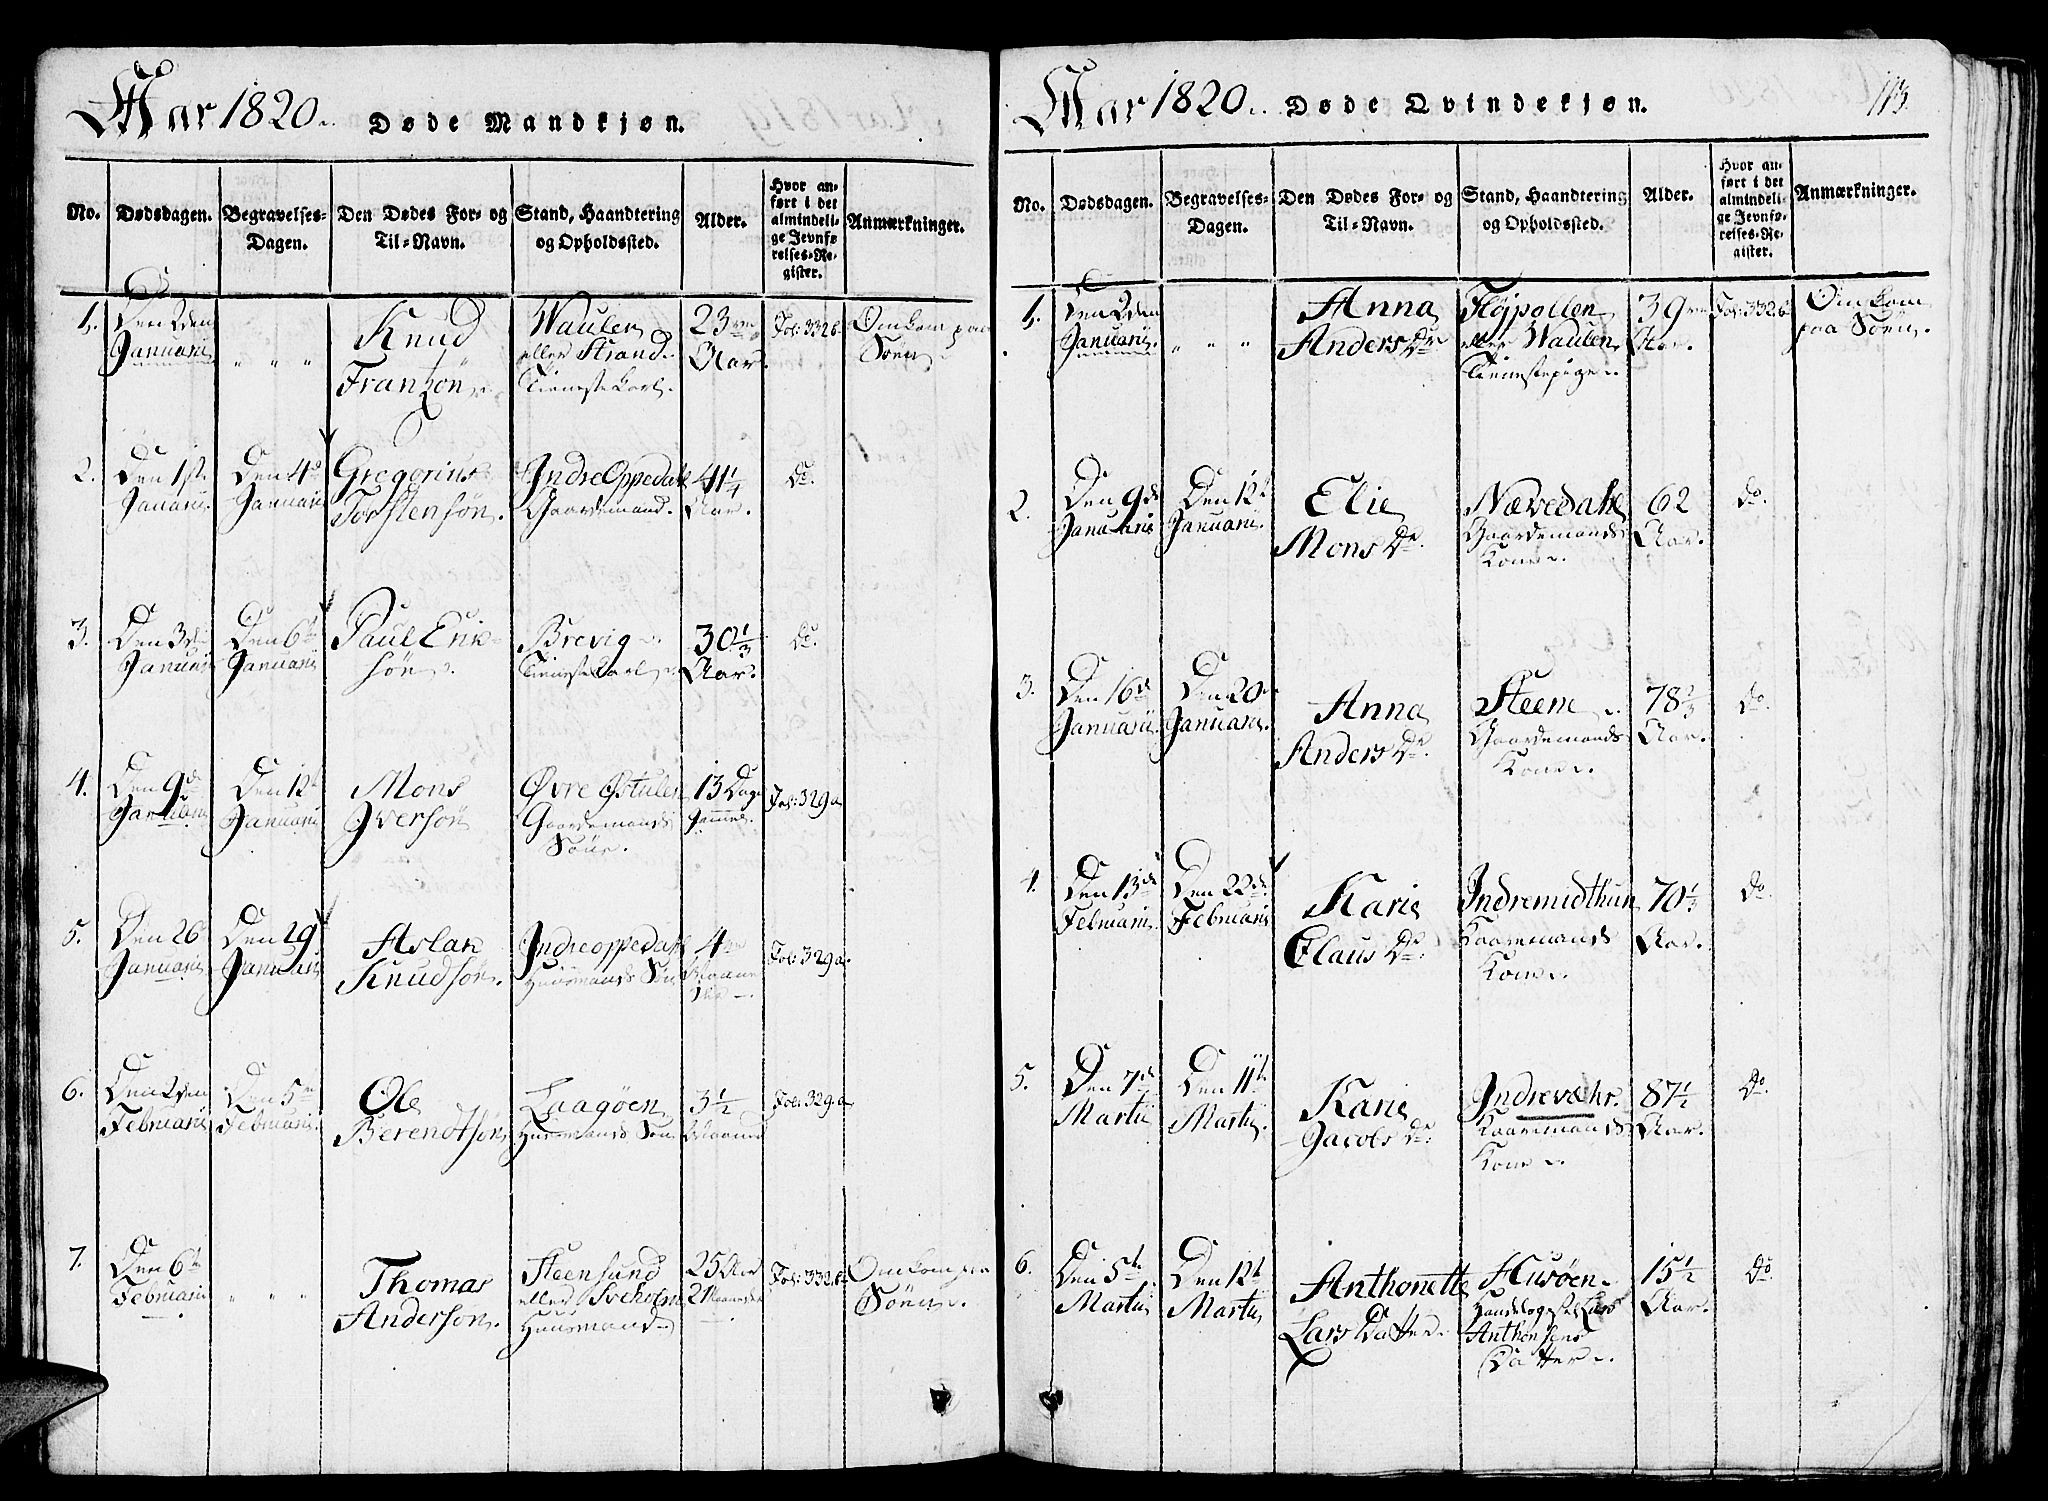 Aar 1820. Døde Mandkjøn.
No. Dødsdagen. Begravelses-Dagen. Den Dødes For- og Til-Navn. Stand, Haandtering og Opholdssted. Alder. Hvor anført i det almindelige Jevnførelses-Register. Anmærkninger.
1. Den 2den Januarii " " " Knud Franzøn. Waulen eller Strand. Tienestekarl. 23 Aar. Fol: 332 b Omkom paa Søen
2. Den 1ste Januarii. Den 4de Januarii Gregorius Torstensøn. Indre Oppedahl Gaardemand. 41 1/4 Aar. Do.
3. Den 3die Januarii Den 6te Januarii Paul Eriksøn. Brevig Tienestekarl. 30 1/3 Aar. Do.
4. Den 9de Januarii Den 12te Januarii Mons Iversøn Øvre Østulen Gaardemands Søn. 13 Dage Gammel Fol: 329 a
5. Den 26 Januarii Den 29 Januarii Aslak Knudsøn. Indre oppedahl Huusmands Søn 4 Fol: 329 a.
6. Den 2den Februarii Den 5te Februarii. Ole Berendtsøn Laagøen Huusmands Søn 3 1/2 Maaned Fol: 329 a
7. Den 6te Februarii " " " Thomas Andersøn. Steensund eller Sveholm Huusmand 25 Aar 21 Fol: 332 b Omkom paa Søen.
Aar 1820. Døde Qvindekjøn. 113.
No. Dødsdagen. Begravelses-Dagen. Den Dødes For- og Til-Navn. Stand, Haandtering og Opholdssted. Alder. Hvor anført i det almindelige Jevnførelses-Register. Anmærkninger.
1. Den 2den Januarii. " " " Anna Anders Dr Fløjpollen eller Waulen Tienestepige. 39 Aar. Fol: 332 b Omkom paa Søen.
2. Den 9de Januarii Den 12te Januarii. Elie Mons Dr. Nævedahl Gaardemands Kone. 62 Aar. Do.
3. Den 16de Januarii Den 20de Januarii. Anna Anders Dr. Steene Gaardemands Kone. 78 2/3 Aar. Do.
4. Den 13de Februarii Den 22de Februarii Karie Claus Dr. Indremidthun Kaaremands Kone. 70 1/3 Aar. Do.
5. Den 7de Martii Den 11te Martii. Karie Jacobs Dr. Indrevæhr. Kaaremands Kone. 87 1/2 Aar. Do.
6. Den 5te Martii Den 12te Martii Anthonette Lars Datter. Husøen Lars Anthonsens Datter. 15 1/2 Aar. Do